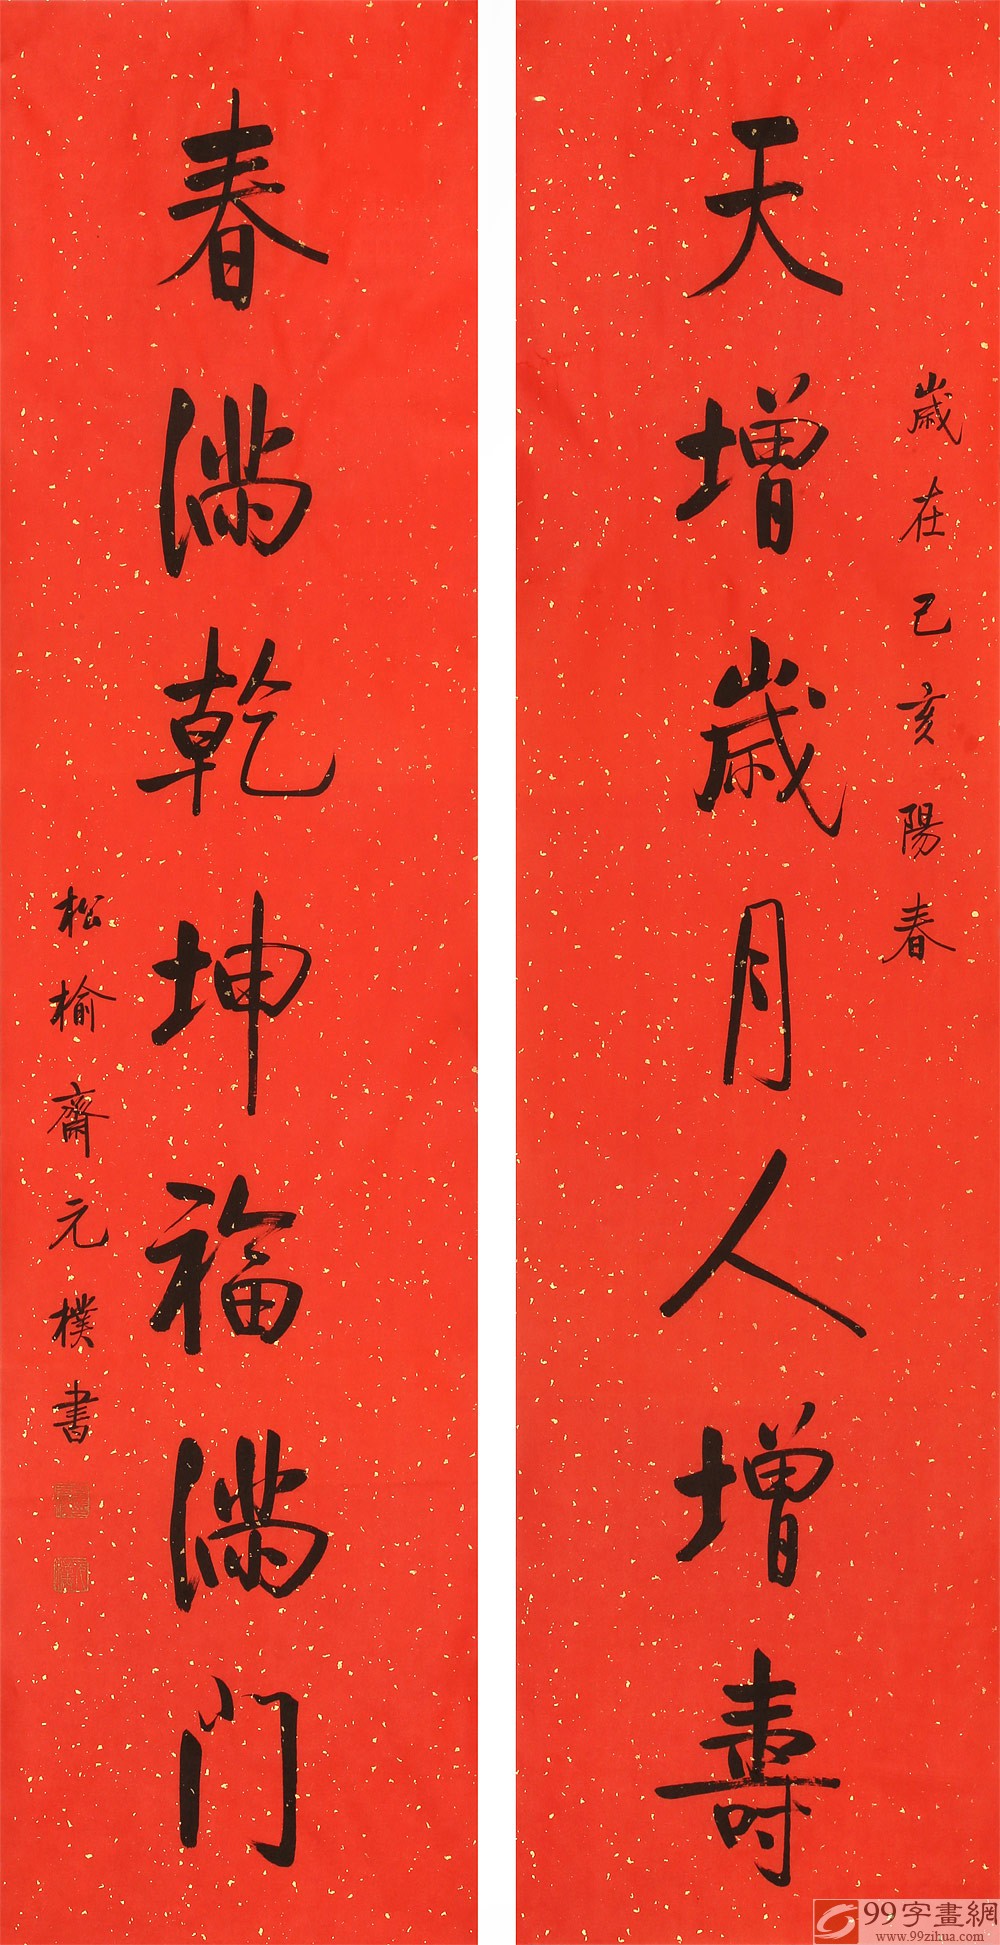 歲在己亥陽春
天增歲月人增壽
春滿乾坤福滿门
松榆齋元樸書
99字畫網
www.99zihua.com